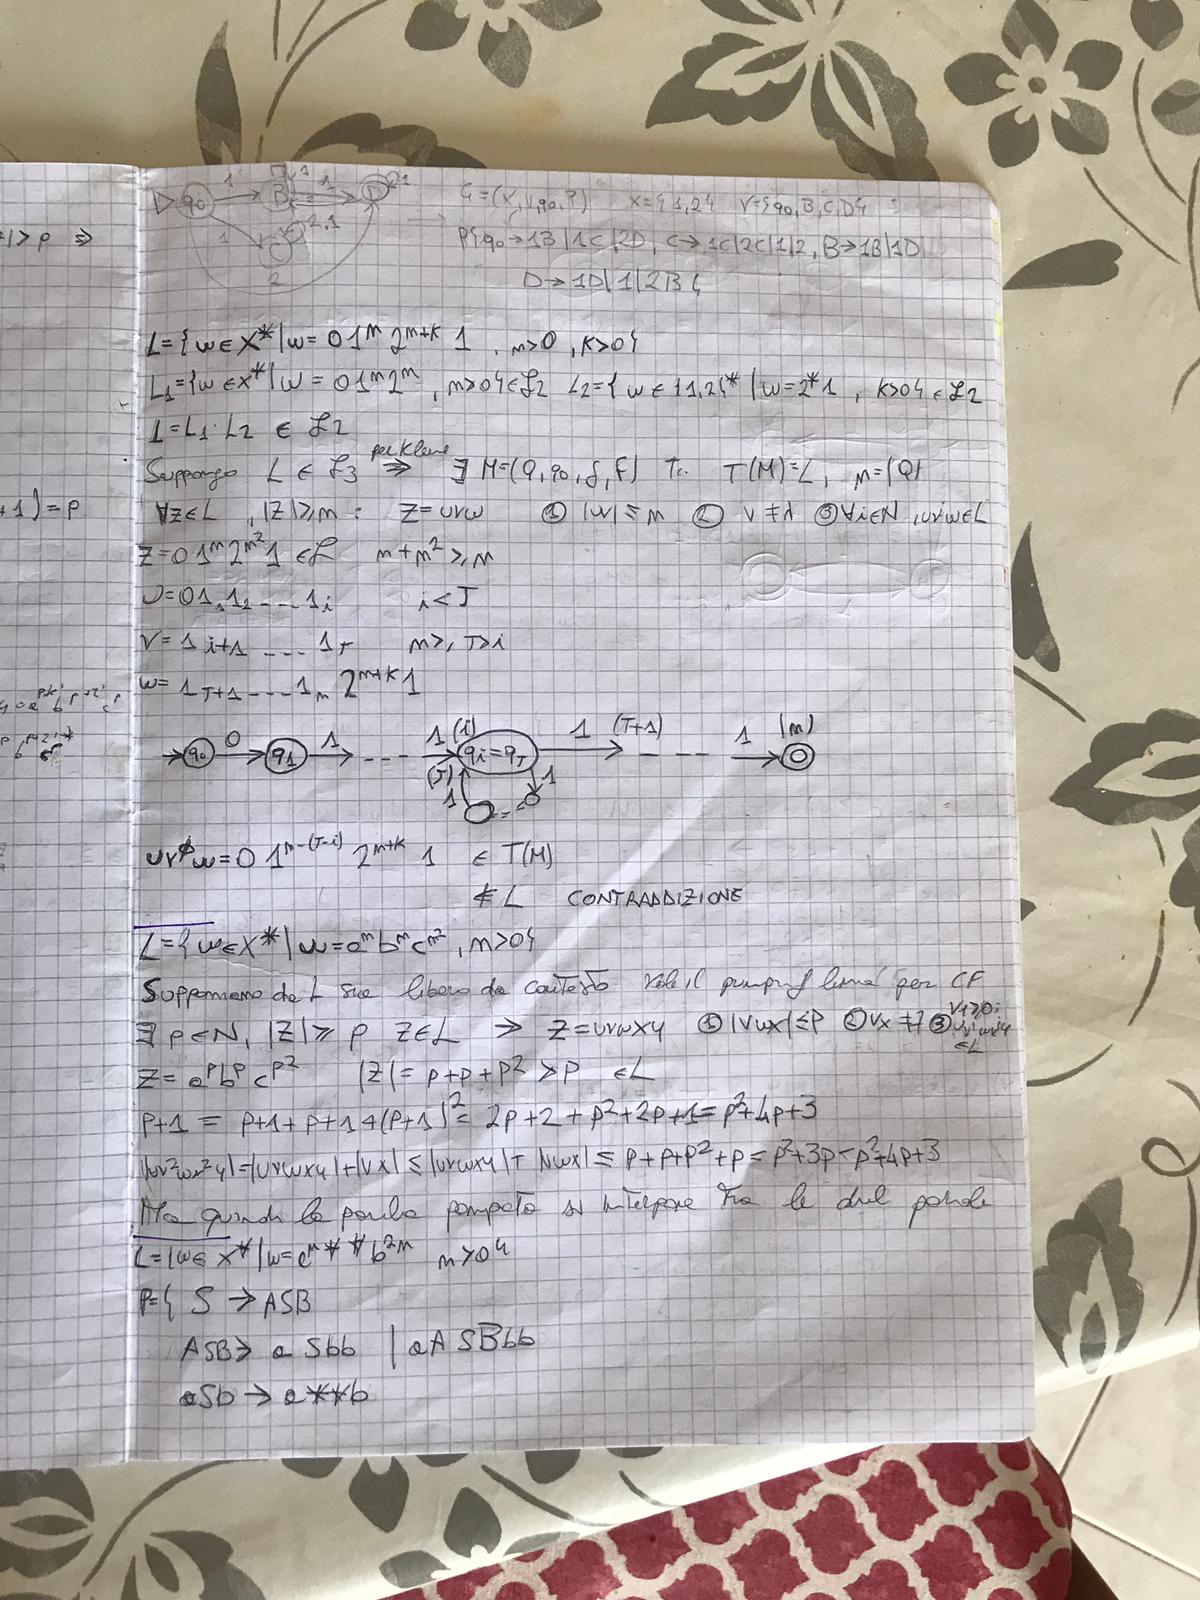 |>p ⇒
+1)=p
q0 1 B 1 D 21
1 2,1
C
2
G=(X,V,q0,P) X={1,2} V={q0,B,C,D}
P{q0→1B|1C|2D, C→1C|2C|1|2, B→1B|1D
D→1D|1|2B}
L={w∈X*|w=01^n 2^{n+k} 1, n>0, k>0}
L1={w∈X*|w=01^n2^n, n>0}∈L2 L2={w∈{1,2}*|w=2*1, k>0}∈L2
L=L1·L2 ∈ L2
Suppongo L∈L3 per Kleene ⇒ ∃ M=(Q,q0,δ,F) Tc. T(M)=L, n=|Q|
∀z∈L, |z|≥n: z=uvw ① |uv|≤n ② v≠λ ③ ∀i∈N, uv^iw∈L
z=01^n2^{n^2}1 ∈L n+n^2≥n
u=01_1 1_2 ---- 1_i i<J
v=1_{i+1} --- 1_J n≥, J>i
w=1_{J+1} ---- 1_n 2^{n+k}1
q0 0 q1 1 ---- 1(i) qi=qJ 1 (J+1) ---- 1 (n)
(J) 1 --- 1
uv^0w=0 1^{n-(J-i)} 2^{n+k} 1 ∈T(M)
∉L CONTRADDIZIONE
L={w∈X*|w=a^n b^n c^{n^2}, n>0}
Supponiamo da L sia libero da contesto vale il pumping lemma per CF
∃ p∈N, |z|≥p z∈L ⇒ z=uvwxy ① |vwx|≤p ② vx≠λ ③ ∀i≥0: uv^iwx^iy ∈L
z=a^p b^p c^{p^2} |z|=p+p+p^2>p ∈L
p+1 = p+1+p+1+(p+1)^2=2p+2+p^2+2p+1=p^2+4p+3
|uv^2wx^2y|=|uvwxy|+|vx|≤|uvwxy|+|vwx|≤p+p+p^2+p=p^2+3p<p^2+4p+3
Ma quindi la parola pompata si interpone tra le due parole
L={w∈X*|w=a^n**b^{2n} n>0}
P={ S→ASB
ASB→aSbb | aASBbb
aSb→a**b